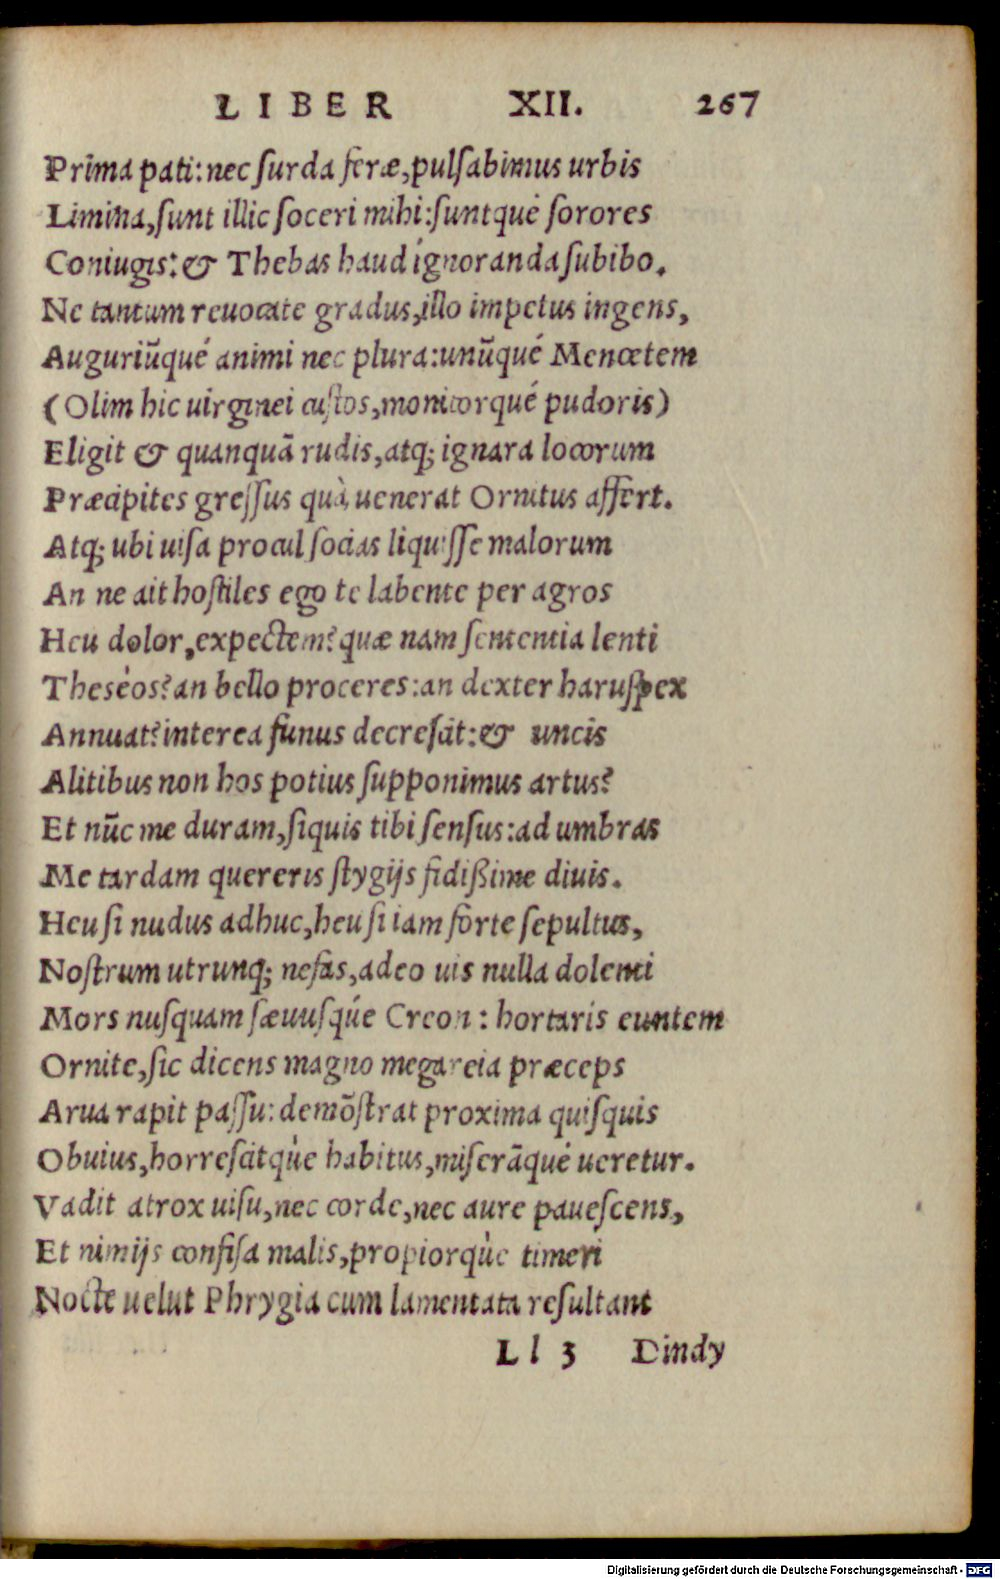 LIBER XII. 267
Prima pati: nec ſurda feræ, pulſabimus urbis
Limina, ſunt illic ſoceri mihi: ſuntqué ſorores
Coniugis: & Thebas haud ignoranda ſubibo.
Ne tantum reuocate gradus, illo impetus ingens,
Auguriūqué animi nec plura: unūqué Menœtem
(Olim hic uirginei cuſtos, monitorqué pudoris)
Eligit & quanquā rudis, atq; ignara locorum
Præcipites greſſus quà uenerat Ornitus affert.
Atq; ubi uiſa procul ſocias liquiſſe malorum
An ne ait hoſtiles ego te labente per agros
Heu dolor, expectem? quæ nam ſententia lenti
Theſeos? an bello proceres: an dexter haruſpex
Annuat? interea funus decreſcit: & uncis
Alitibus non hos potius ſupponimus artus?
Et nūc me duram, ſiquis tibi ſenſus: ad umbras
Me tardam quereris ſtygijs fidißime diuis.
Heu ſi nudus adhuc, heu ſi iam forte ſepultus,
Noſtrum utrunq; nefas, adeo uis nulla dolenti
Mors nuſquam ſæuuſqúe Creon: hortaris euntem
Ornite, ſic dicens magno megareia præceps
Arua rapit paſſu: demōſtrat proxima quiſquis
Obuius, horreſcitqùe habitus, miſerāqué ueretur.
Vadit atrox uiſu, nec corde, nec aure paueſcens,
Et nimijs confiſa malis, propiorqùe timeri
Nocte uelut Phrygia cum lamentata reſultant
Ll 3 Dindy
Digitalisierung gefördert durch die Deutsche Forschungsgemeinschaft - DFG